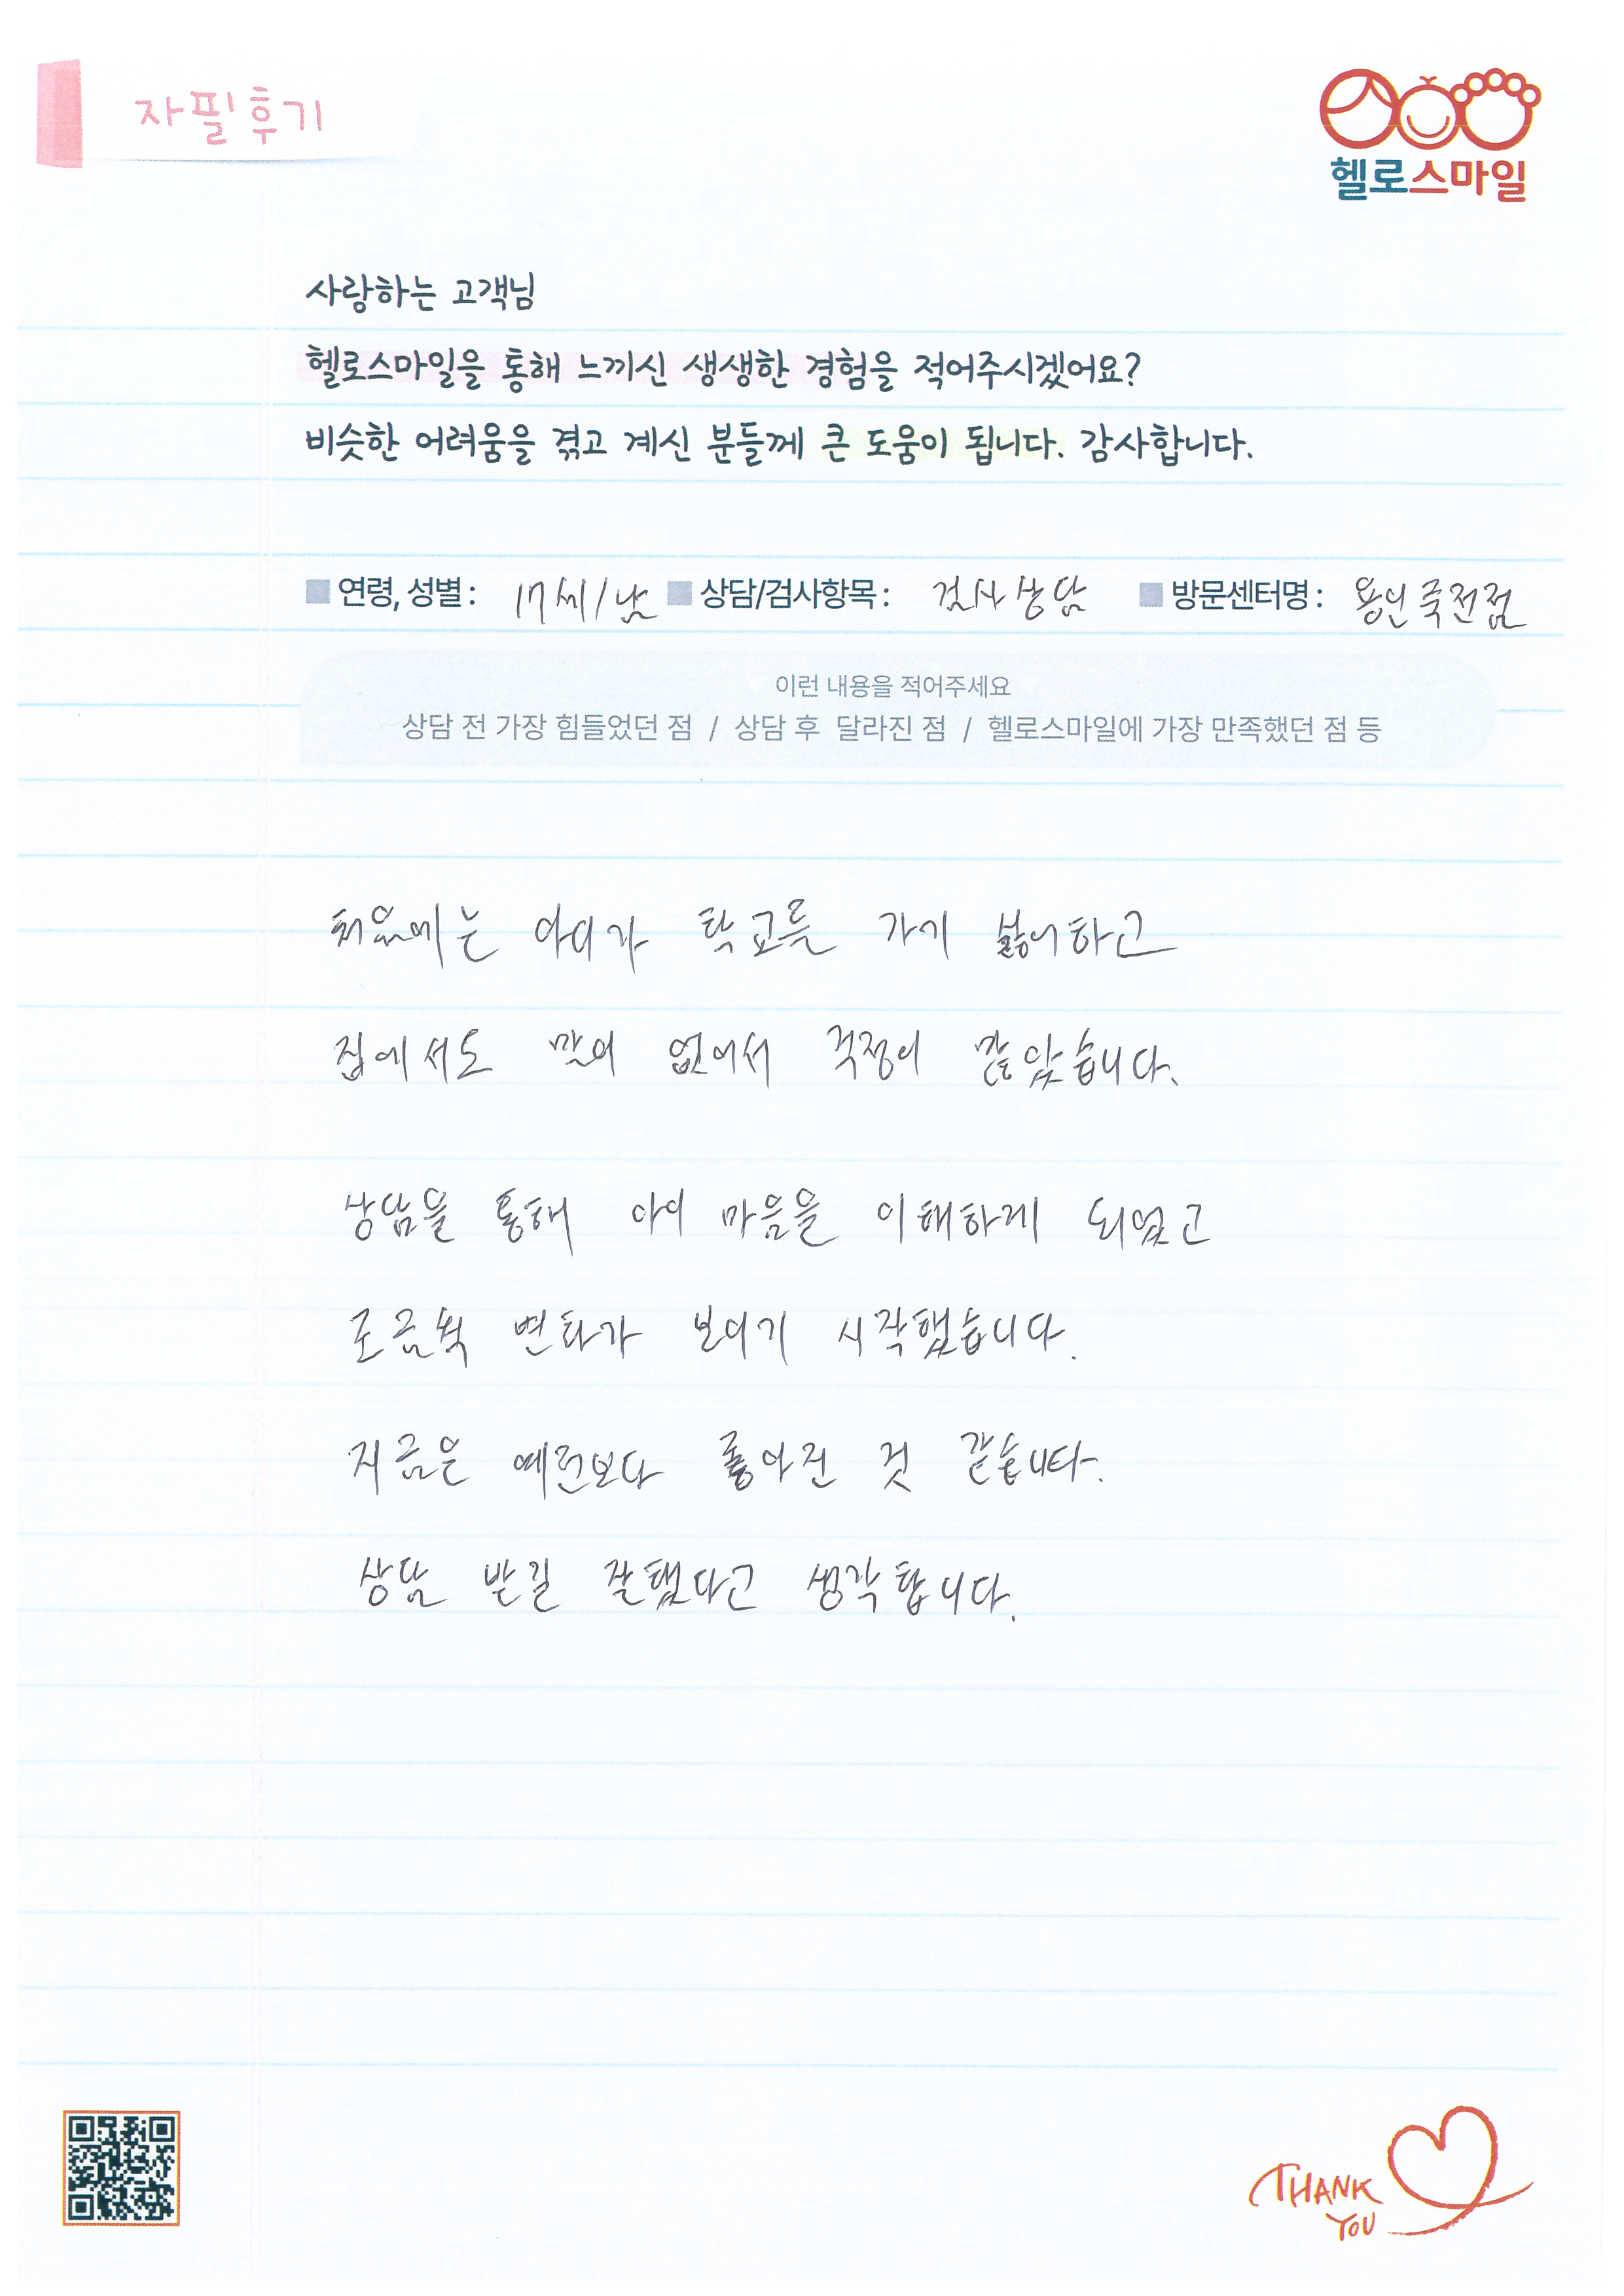 자필후기
헬로스마일
사랑하는 고객님
헬로스마일을 통해 느끼신 생생한 경험을 적어주시겠어요?
비슷한 어려움을 겪고 계신 분들께 큰 도움이 됩니다. 감사합니다.
연령, 성별 : 17세/남 상담/검사항목 : 검사상담 방문센터명 : 용인죽전점
이런 내용을 적어주세요
상담 전 가장 힘들었던 점 / 상담 후 달라진 점 / 헬로스마일에 가장 만족했던 점 등
처음에는 아이가 학교를 가기 싫어하고
집에서도 말이 없어서 걱정이 많았습니다.
상담을 통해 아이 마음을 이해하게 되었고
조금씩 변화가 보이기 시작했습니다.
지금은 예전보다 좋아진 것 같습니다.
상담 받길 잘했다고 생각합니다.
THANK
YOU